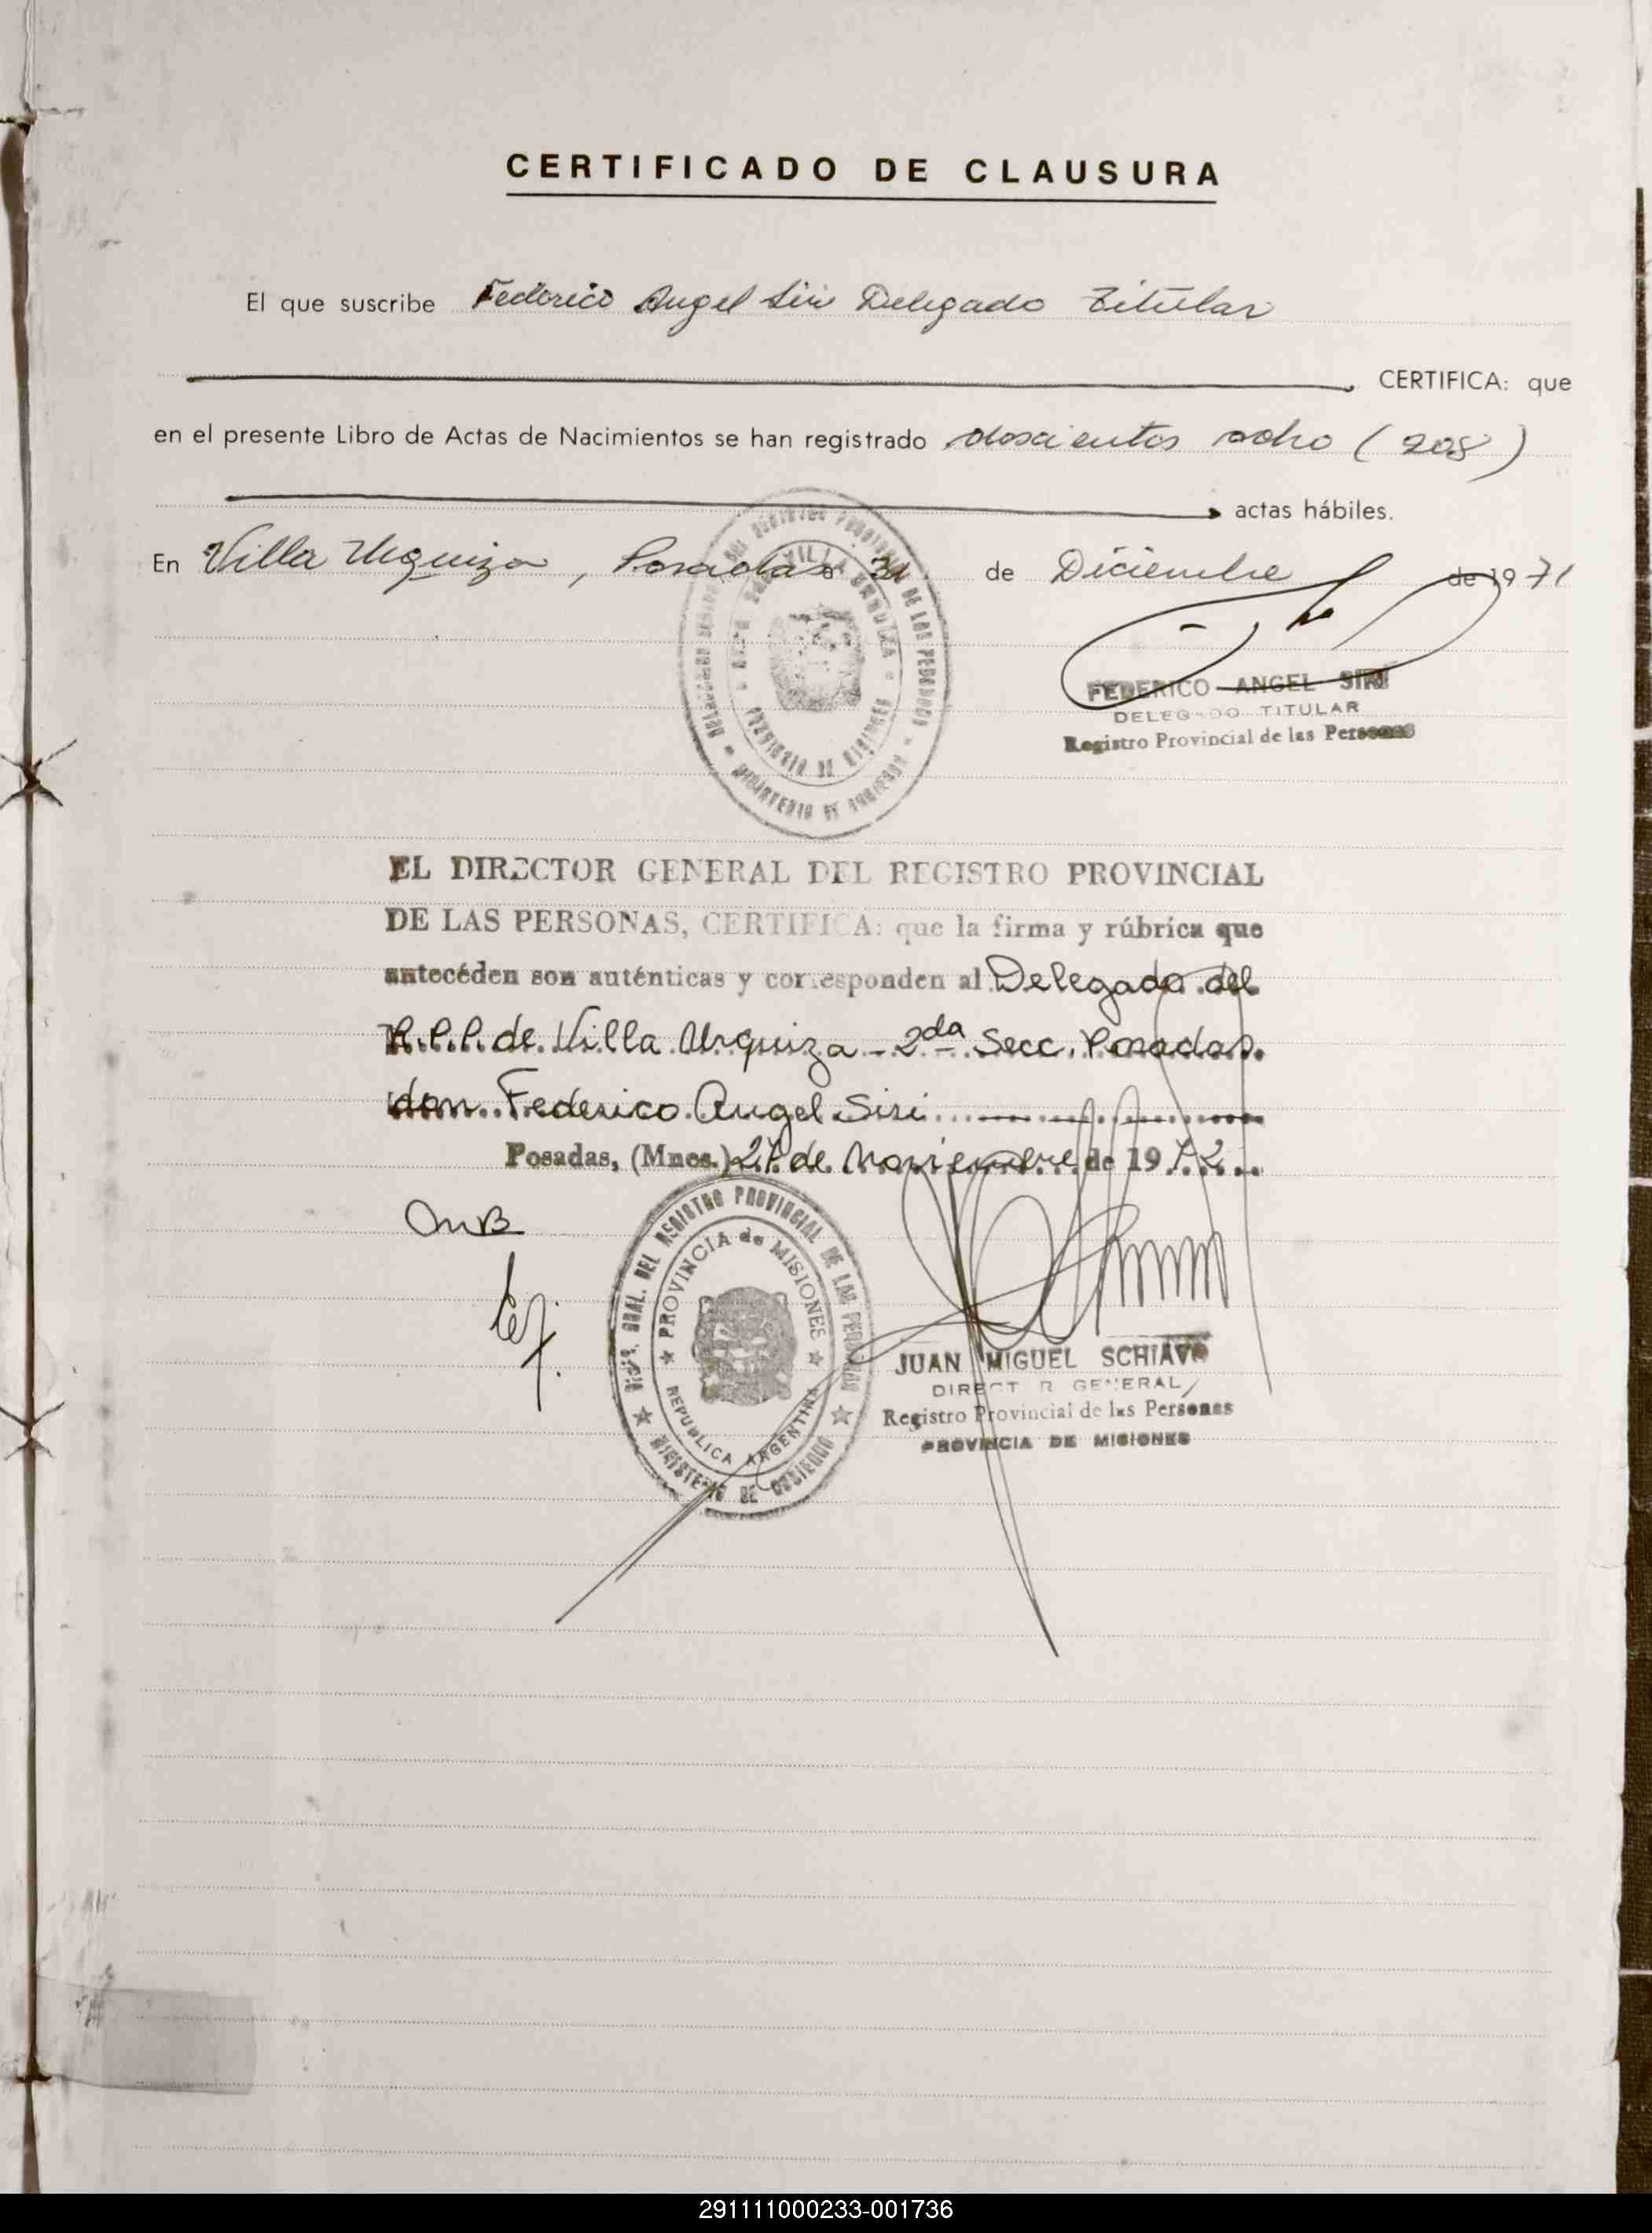 CERTIFICADO DE CLAUSURA
El que suscribe Federico Angel Siri Delegado Titular
CERTIFICA: que
en el presente Libro de Actas de Nacimientos se han registrado doscientos ocho (208)
actas hábiles.
En Villa Urquiza, Posadas a 31 de Diciembre de 1971
FEDERICO ANGEL SIRI
DELEGADO TITULAR
Registro Provincial de las Personas
EL DIRECTOR GENERAL DEL REGISTRO PROVINCIAL
DE LAS PERSONAS, CERTIFICA: que la firma y rúbrica que
antecéden son auténticas y corresponden al Delegado del
R.P.P. de Villa Urquiza - 2da Secc. Posadas.
don Federico Angel Siri
Posadas, (Mnes.) de Noviembre de 1972
DEL REGISTRO PROVINCIAL DE LAS PERSONAS
PROVINCIA de MISIONES
REPUBLICA ARGENTINA
MINISTERIO DE GOBIERNO
JUAN MIGUEL SCHIAVO
DIRECTOR GENERAL
Registro Provincial de las Personas
PROVINCIA DE MISIONES
291111000233-001736